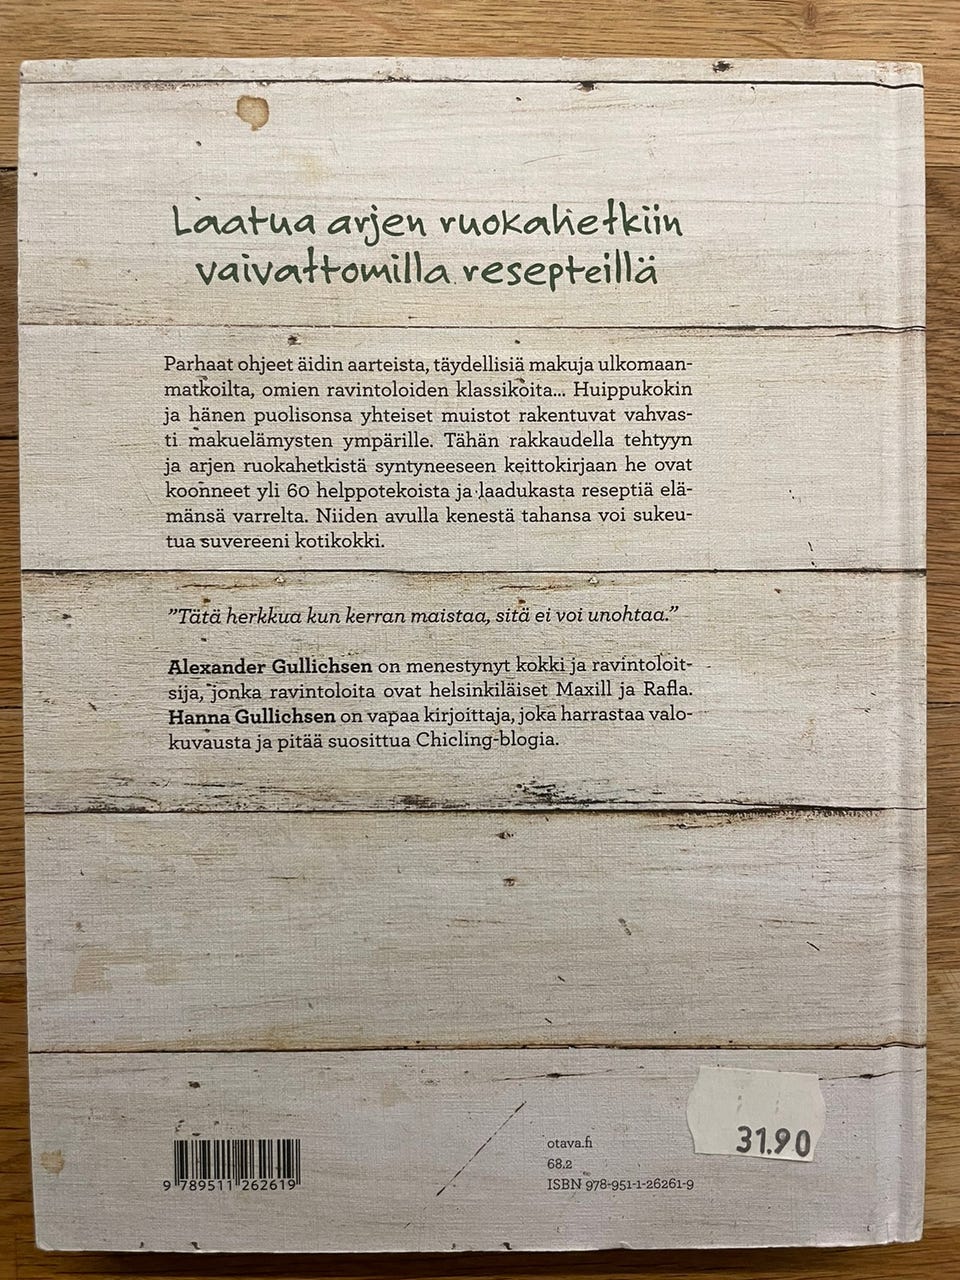 Laatua arjen ruokahetkiin
vaivattomilla resepteillä
Parhaat ohjeet äidin aarteista, täydellisiä makuja ulkomaan-
matkoilta, omien ravintoloiden klassikoita... Huippukokin
ja hänen puolisonsa yhteiset muistot rakentuvat vahvas-
ti makuelämysten ympärille. Tähän rakkaudella tehtyyn
ja arjen ruokahetkistä syntyneeseen keittokirjaan he ovat
koonneet yli 60 helppotekoista ja laadukasta reseptiä elä-
mänsä varrelta. Niiden avulla kenestä tahansa voi sukeu-
tua suvereeni kotikokki.
”Tätä herkkua kun kerran maistaa, sitä ei voi unohtaa.”
Alexander Gullichsen on menestynyt kokki ja ravintoloit-
sija, jonka ravintoloita ovat helsinkiläiset Maxill ja Rafla.
Hanna Gullichsen on vapaa kirjoittaja, joka harrastaa valo-
kuvausta ja pitää suosittua Chicling-blogia.
31.90
otava.fi
68.2
ISBN 978-951-1-26261-9
9 789511 262619